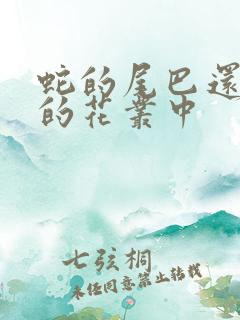 蛇的尾巴還
的花叢中
七弦桐
未經同意禁止轉載